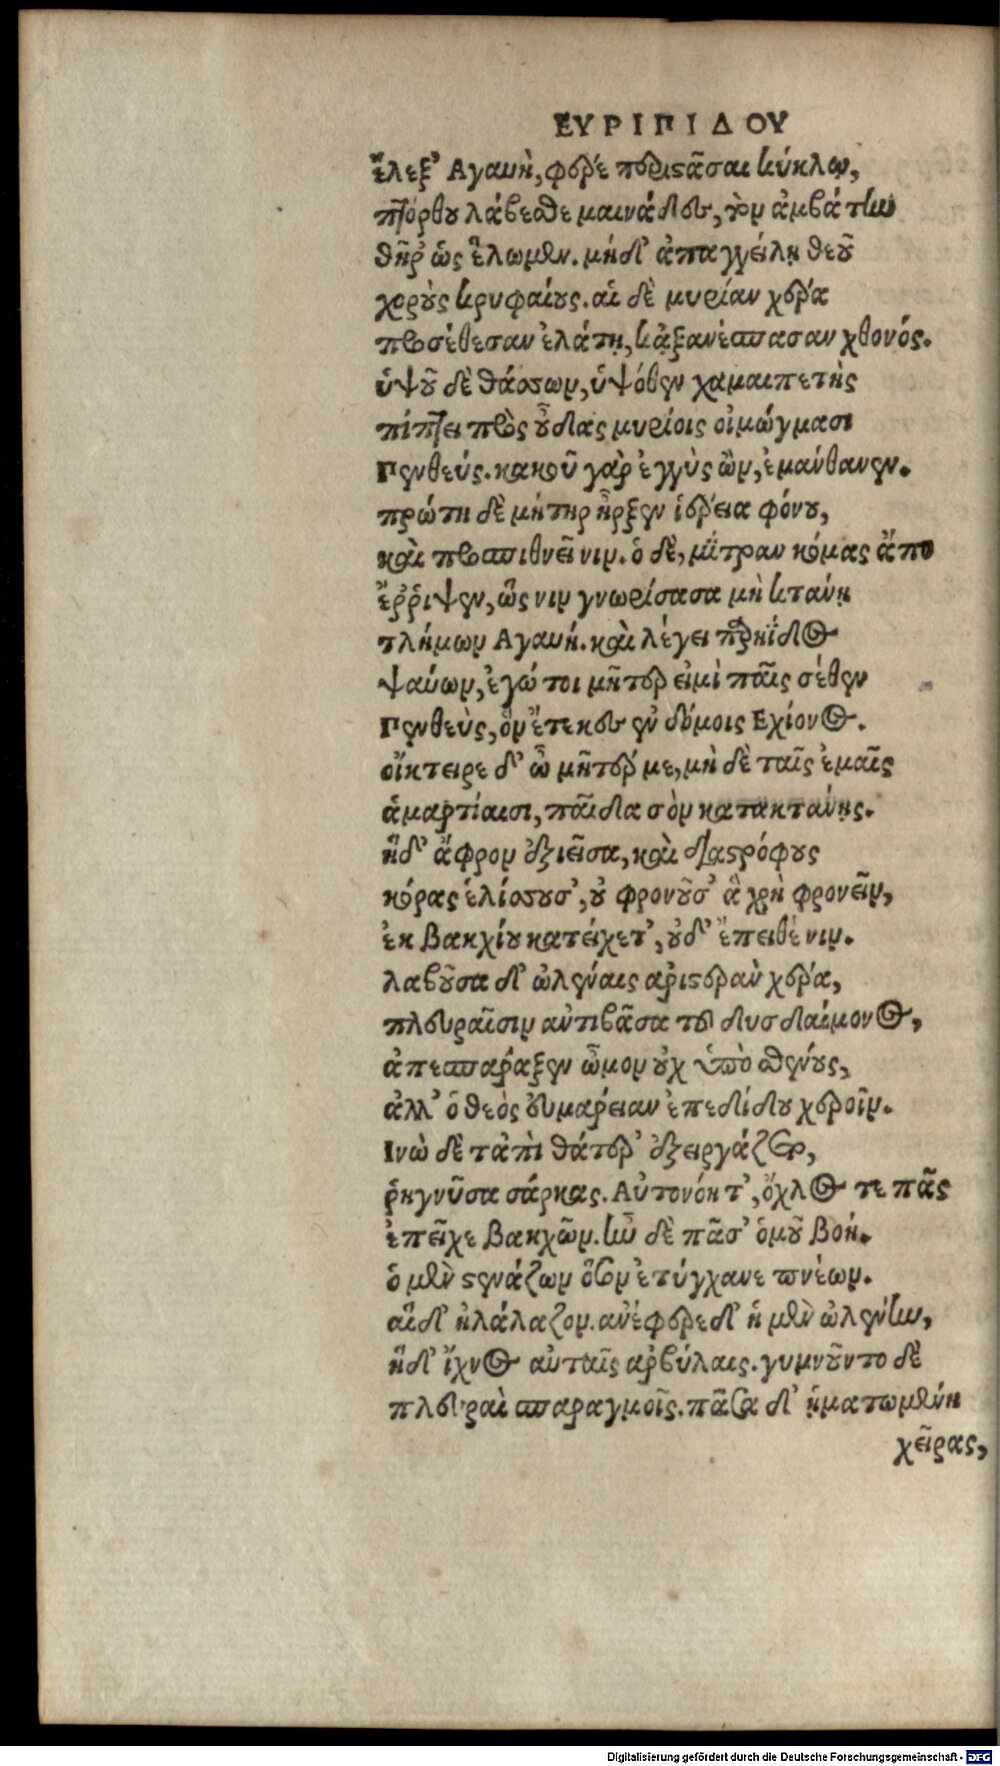 ΕΥΡΙΠΙΔΟΥ
ἔλεξ' Αγαυὴ, φέρε περιστᾶσαι κύκλῳ,
πτόρθου λάβεσθε μαινάδες, τὸν ἀμβάτην
θῆρ' ὡς ἕλωμεν. μήδ' ἀπαγγείλῃ θεοῦ
χοροὺς κρυφαίους. αἱ δὲ μυρίαν χέρα
προσέθεσαν ἐλάτῃ, κἀξανέσπασαν χθονός.
ὑψοῦ δὲ θάσσων, ὑψόθεν χαμαιπετὴς
πίπτει πρὸς οὖδας μυρίοις οἰμώγμασι
Πενθεύς. κακοῦ γὰρ ἐγγὺς ὢν, ἐμάνθανεν.
πρώτη δὲ μήτηρ ἦρξεν ἱέρεια φόνου,
καὶ προσπιθνεῖ νιν. ὁ δὲ, μίτραν κόμας ἄπο
ἔῤῥιψεν, ὥς νιν γνωρίσασα μὴ κτάνῃ
τλήμων Αγαυή. καὶ λέγει παρηΐδος
ψαύων, ἐγώ τοι μῆτερ εἰμὶ παῖς σέθεν
Πενθεὺς, ὃν ἔτεκες ἐν δόμοις Εχίονος.
οἴκτειρε δ' ὦ μῆτέρ με, μὴ δὲ ταῖς ἐμαῖς
ἁμαρτίαισι, παῖδα σὸν κατακτάνῃς.
ἣ δ' ἄφρον ἐξιεῖσα, καὶ διαστρόφους
κόρας ἑλίσσουσ', οὐ φρονοῦσ' ἃ χρὴ φρονεῖν,
ἐκ Βακχίου κατείχετ', οὐδ' ἔπειθέ νιν.
λαβοῦσα δ' ὠλέναις ἀριστερὰν χέρα,
πλευραῖσιν αὐτιβᾶσα τοῦ δυσδαίμονος,
ἀπεσπάραξεν ὦμον οὐχ ὑπὸ σθένους,
ἀλλ' ὁ θεὸς εὐμάρειαν ἐπεδίδου χεροῖν.
Ινὼ δὲ τἀπὶ θάτερ' ἐξειργάζετο,
ῥηγνῦσα σάρκας. Αὐτονόη τ', ὄχλος τε πᾶς
ἐπεῖχε βακχῶν. ἦν δὲ πᾶσ' ὁμοῦ βοή.
ὁ μὲν στενάζων ὅσον ἐτύγχανε πνέων.
αἳ δ' ἠλάλαζον. ἀνέφερε δ' ἡ μὲν ὠλένην,
ἣ δ' ἴχνος αὐταῖς ἀρβύλαις. γυμνοῦντο δὲ
πλευραὶ σπαραγμοῖς. πᾶσα δ' ᾑματωμένη
χεῖρας,
Digitalisierung gefördert durch die Deutsche Forschungsgemeinschaft - DFG